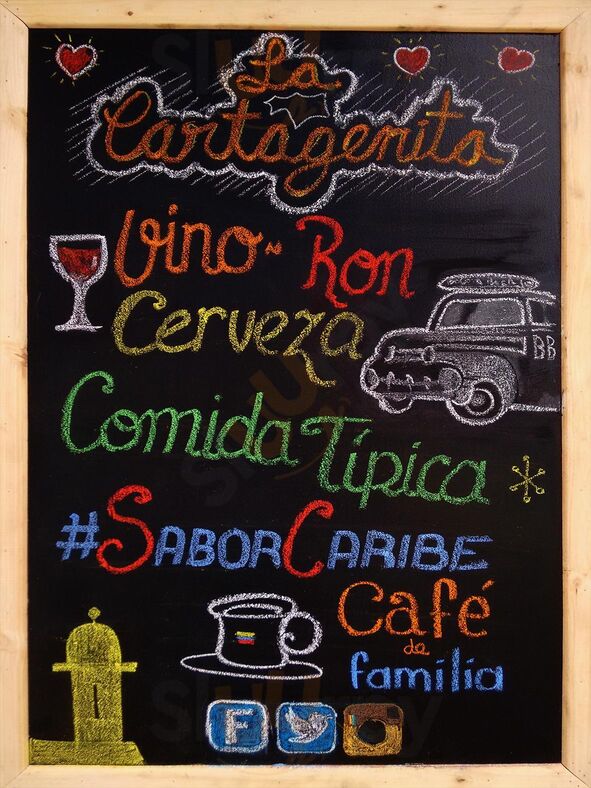 La
Cartagenita
Vino ~ Ron
Cerveza
BB
Comida Típica
#SABOR CARIBE
Café
de
familia
F